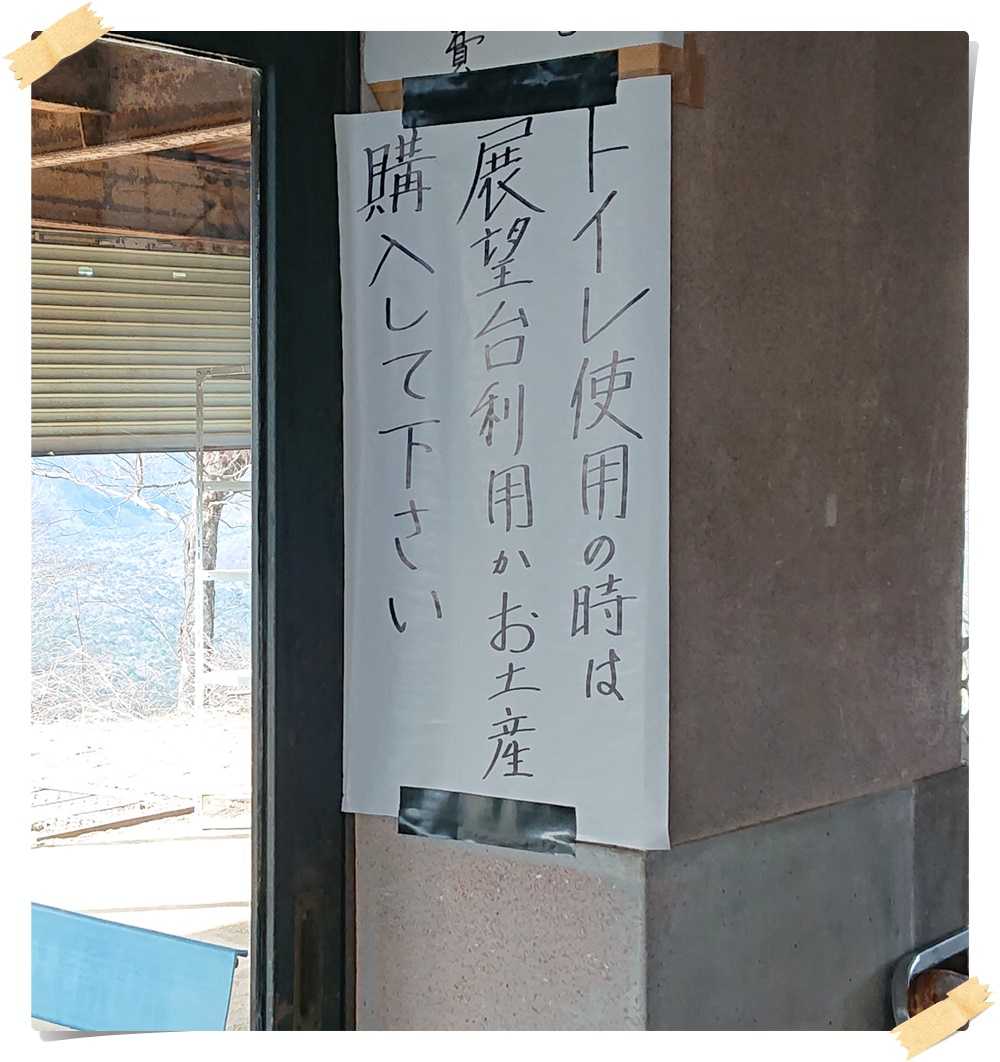 トイレ使用の時は
展望台利用かお土産
購入して下さい